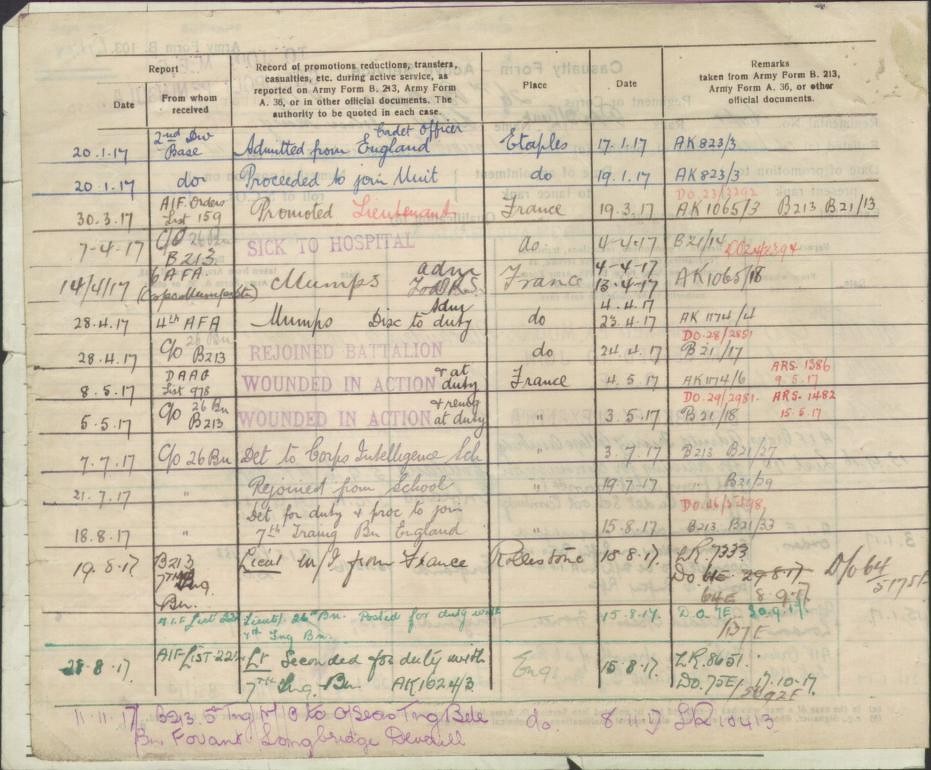 Report
Date
From whom received
Record of promotions reductions, transfers, casualties, etc. during active service, as reported on Army Form B. 213, Army Form A. 36, or in other official documents. The authority to be quoted in each case.
Place
Date
Remarks taken from Army Form B. 213, Army Form A. 36, or other official documents.
20.1.17 2nd Div Base Cadet Officer Admitted from England Etaples 17.1.17 AK 823/3
20.1.17 do Proceeded to join Unit do 19.1.17 AK 823/3
30.3.17 A.I.F. Orders List 159 Promoted Lieutenant France 19.3.17 DO.23/3292 AK 1065/3 B213 B21/13
7-4-17 C/O 26 Bn B213 SICK TO HOSPITAL do 4-4-17 B21/14
14/4/17 6 AFA Mumps adm France 4-4-17 13-4-17 AK1065/18
28.4.17 4th AFA Mumps Adm Disc to duty do 4.4.17 23.4.17 AK 1174/4
28.4.17 C/o 26 Bn B213 REJOINED BATTALION do 24.4.17 DO.28/2851 B21/17
8.5.17 DAAG List 978 WOUNDED IN ACTION & at duty France 4.5.17 AK1174/6 ARS. 1386 9.5.17
5.5.17 C/o 26 Bn B213 WOUNDED IN ACTION & remg at duty " 3.5.17 DO.29/2981. B21/18 ARS. 1482 15.5.17
7.7.17 C/o 26 Bn Det to Corps Intelligence Sch " 3.7.17 B213 B21/27
21.7.17 " Rejoined from School " 19.7.17 " B21/29
18.8.17 " Det for duty & proc to join 7th Traing Bn England " 15.8.17 B213 B21/33
19.8.17 B213 7th Tng Bn. Lieut M/I from France Rollestone 15.8.17 LR.7333 DO. 64E 29.8.17 64E 8.9.17. D/o 64
A.I.F. List Lieut. 26th Bn. Posted for duty with 7th Tng Bn. 15.8.17. D.O. 7E
28.8.17. AIF LIST Lt Seconded for duty with 7th Tng. Bn AK1624/3 Eng 15.8.17. LR.8651. DO.75E/ 17.10.17
11.11.17 B213 5 Tng M/O to O'Seas Tng Bde do. 8.11.17 LR10413
Bn Fovant. Longbridge Deverill